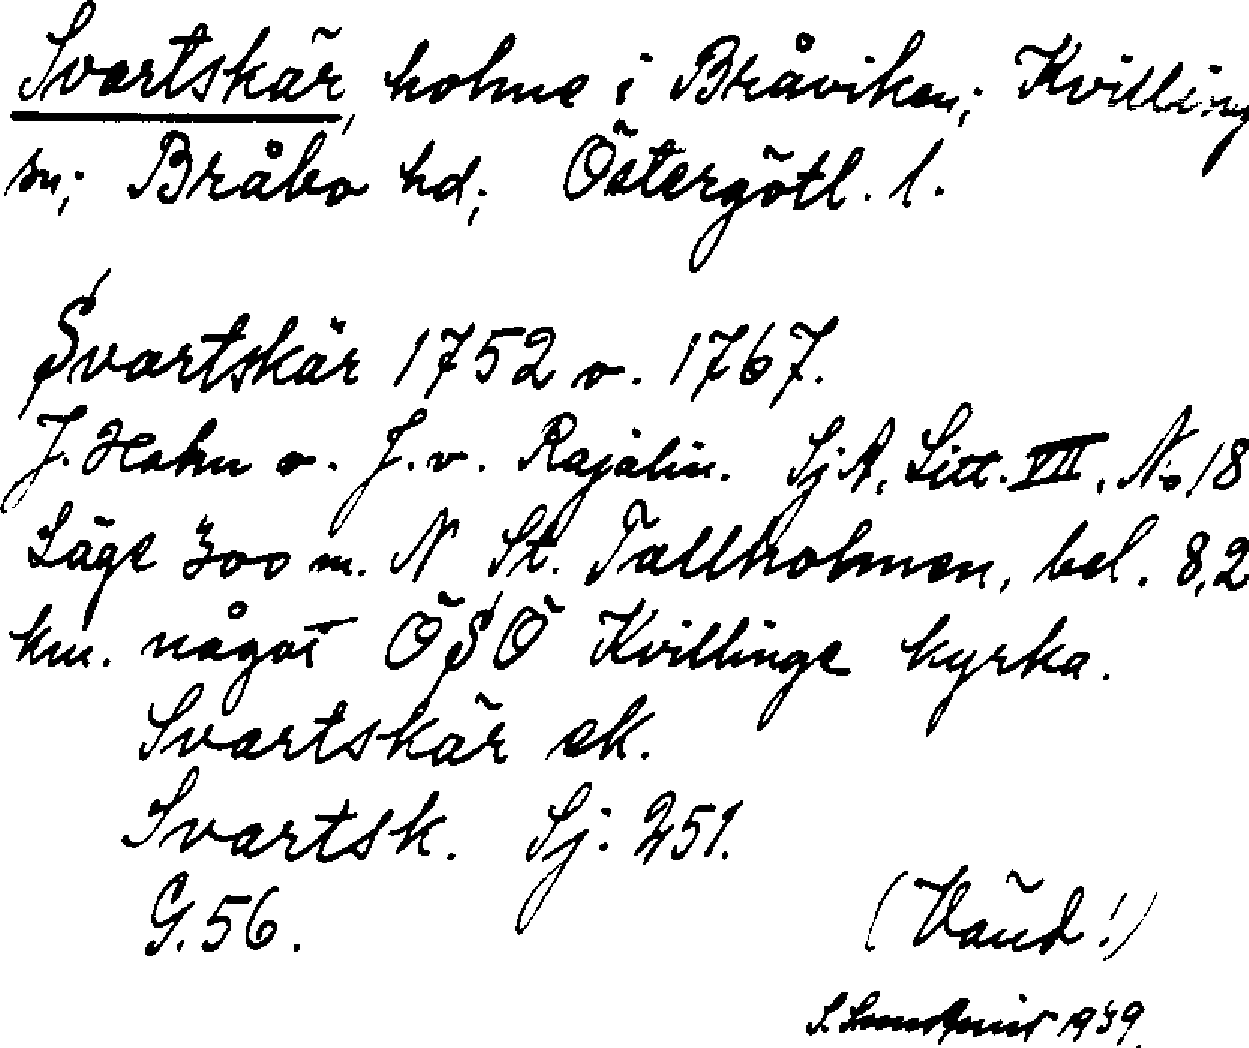 Svartskär, holme i Bråviken; Kvilling
sn; Bråbo hd; Östergötl. l.
Svartskär 1752 o. 1767.
J. Hahn o. J. v. Rajalin. SjA, Litt. VII, No 18
Läge 300 m. N St. Tallholmen, bel. 8,2
km. något ÖSÖ Kvillinge kyrka.
Svartskär ek.
Svartsk. Sj. 251.
G. 56.
(Vänd!)
S. 1939.